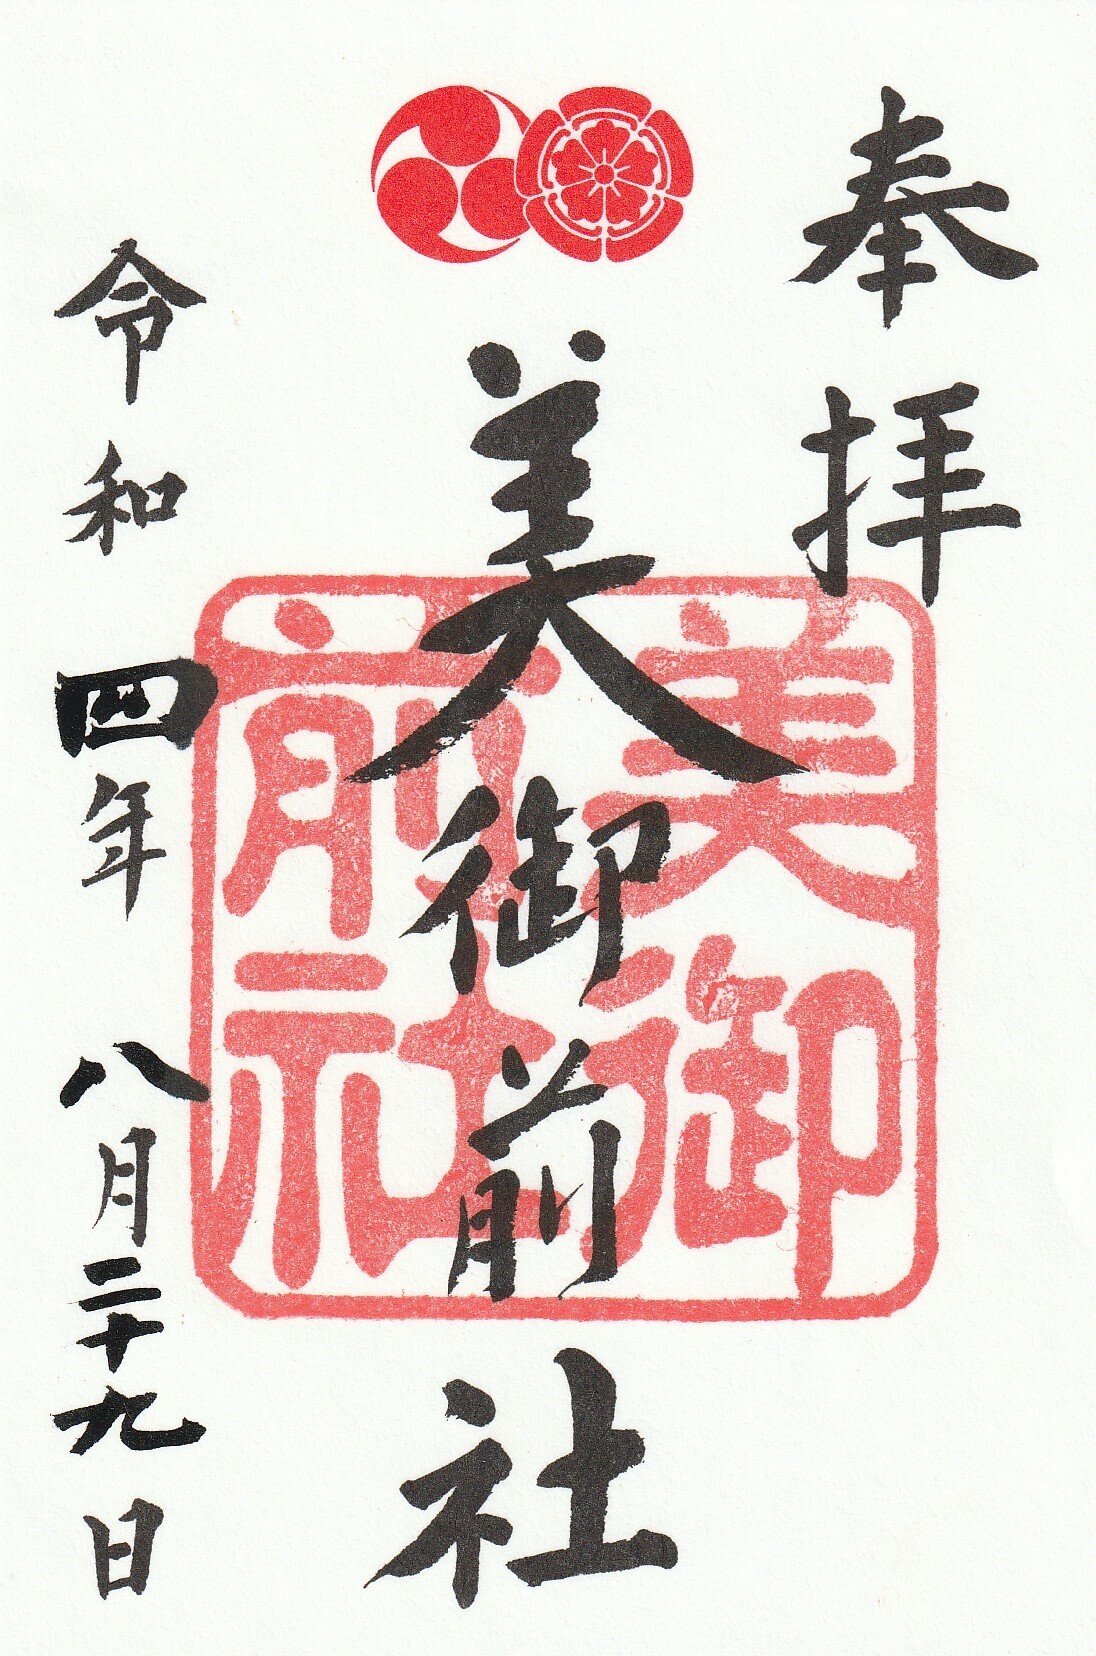 奉拝
美御前社
美御前社
令和四年八月二十九日